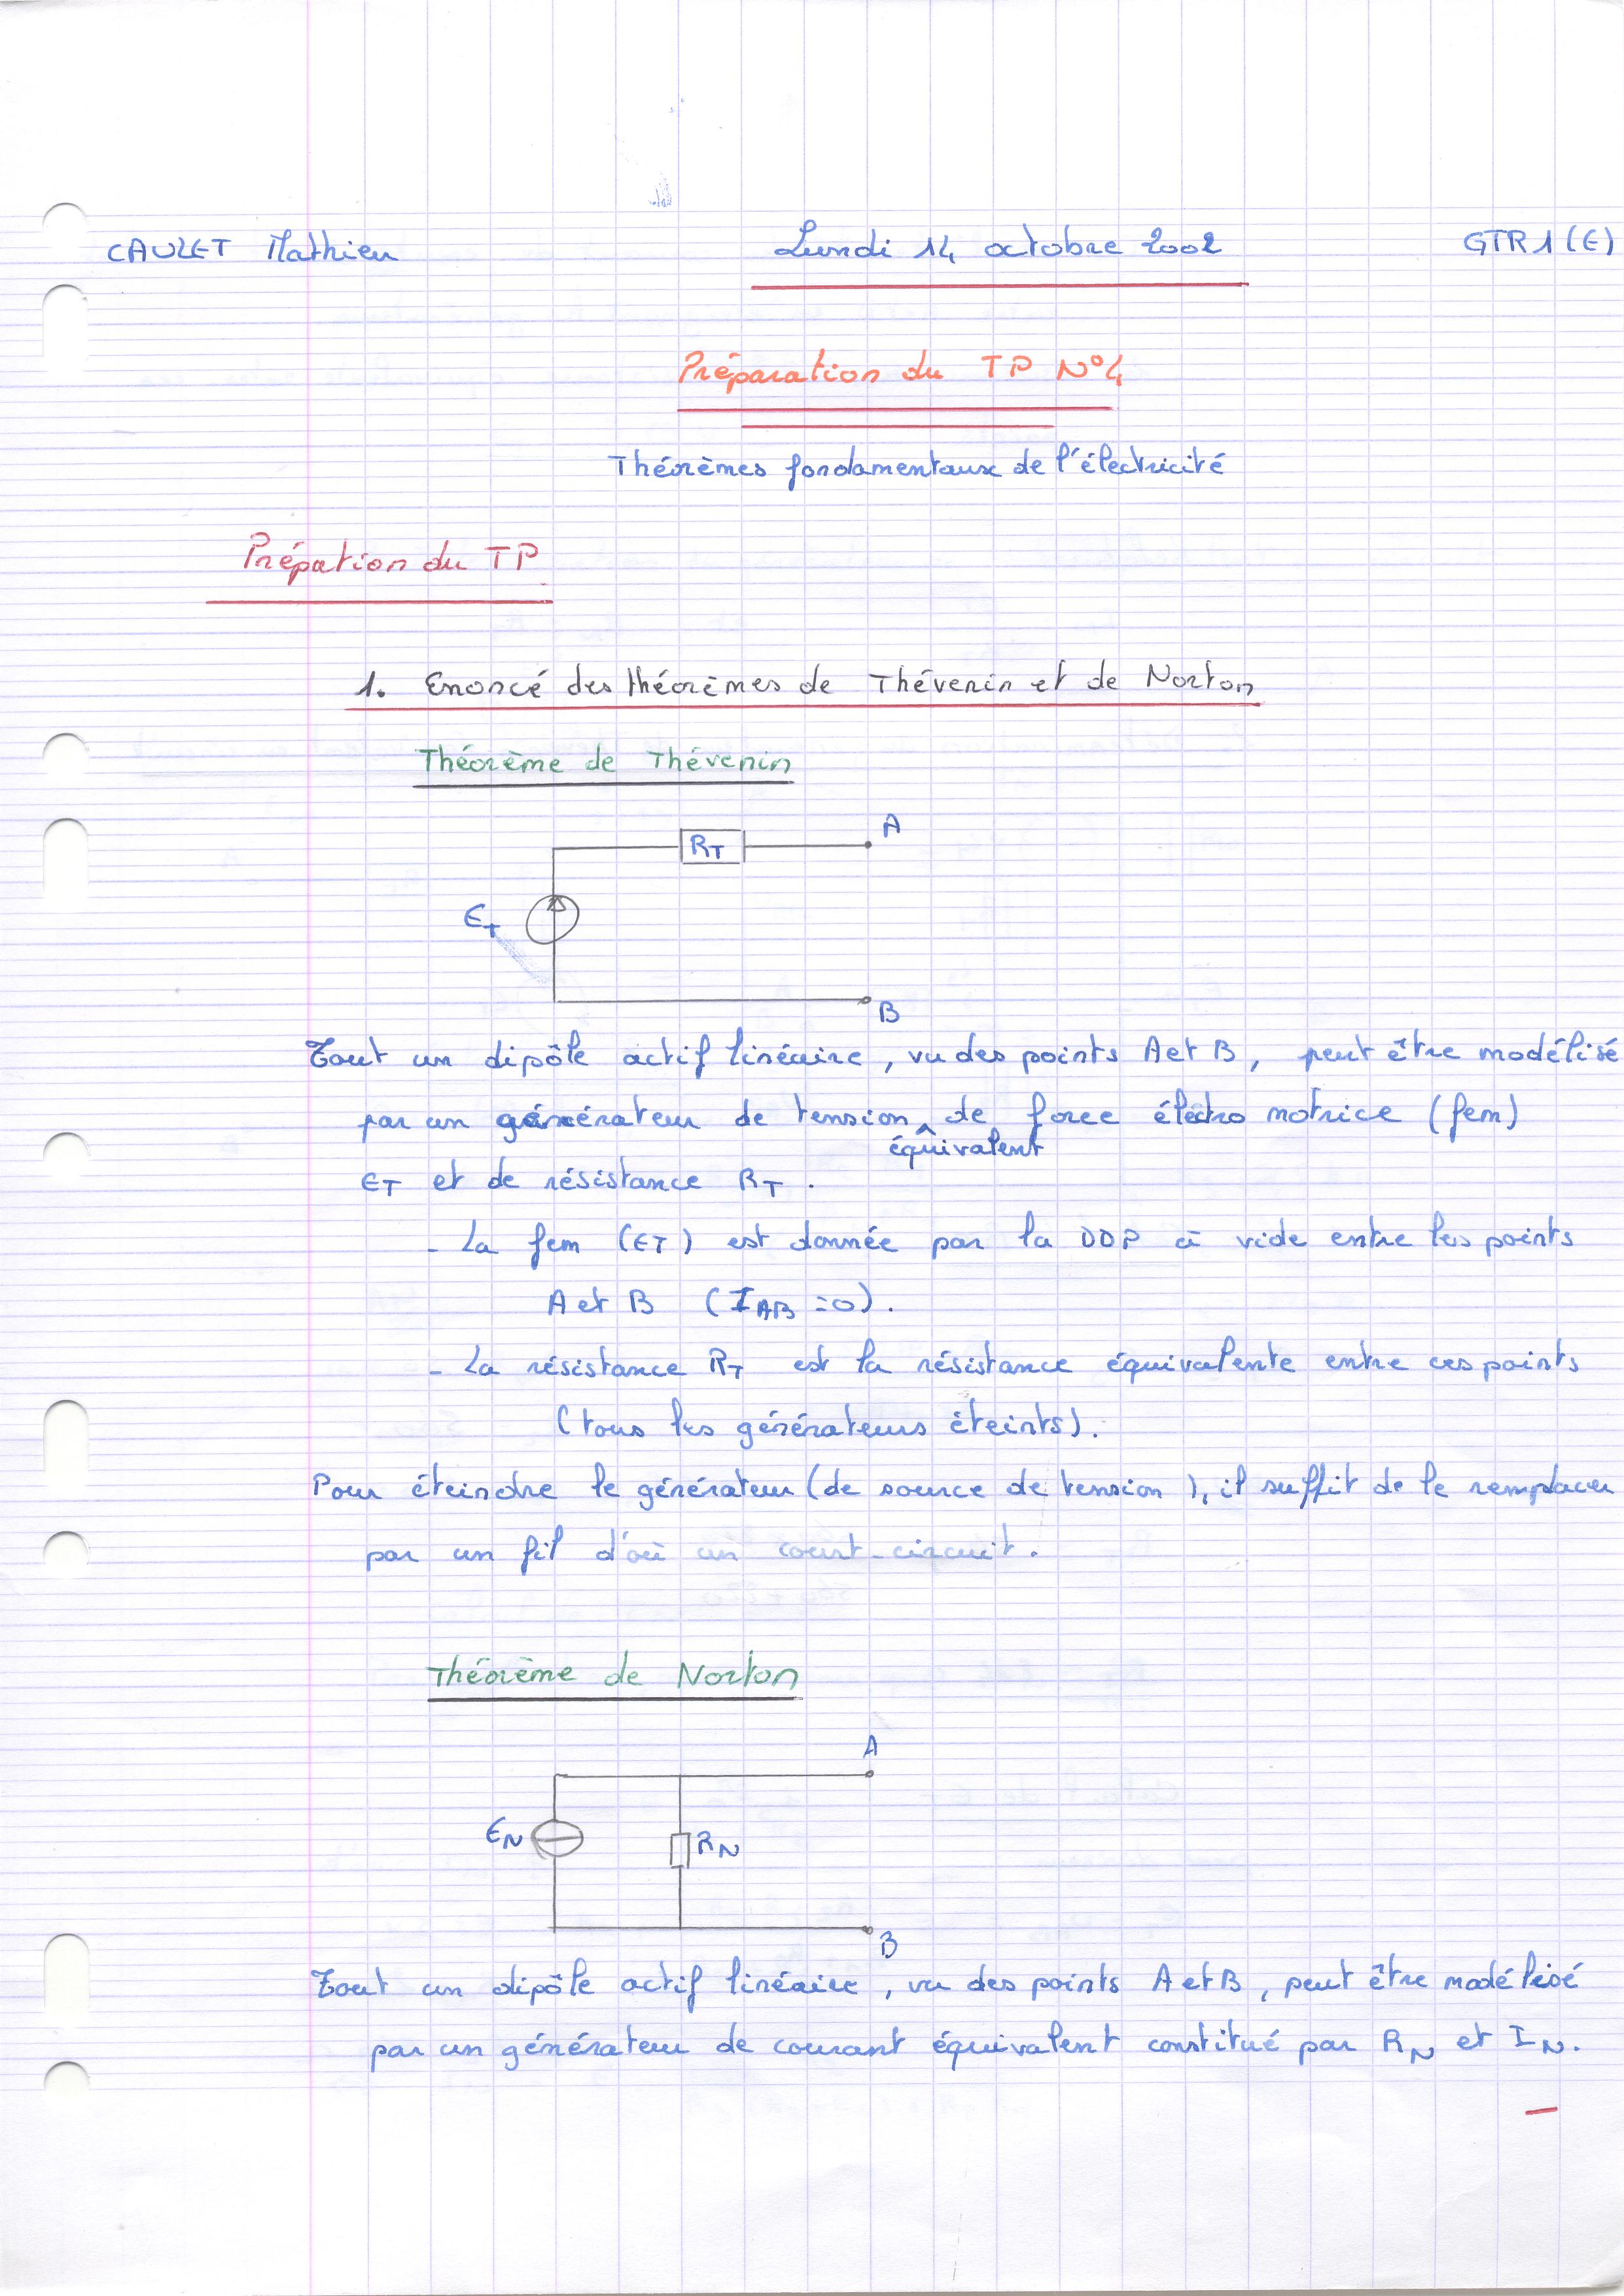 CAULET Mathieu Lundi 14 octobre 2002 GTR1 (E)
Préparation du TP N°4
Théorèmes fondamentaux de l'électricité
Prépation du TP
1. Enoncé des théorèmes de Thévenin et de Norton
Théorème de Thévenin
A
RT
ET
B
Tout un dipôle actif linéaire, vu des points A et B, peut être modélisé
par un générateur de tension ^ de force électro motrice (fem)
équivalent
ET et de résistance RT.
- La fem (ET) est donnée par la DDP à vide entre les points
A et B (IAB = 0).
- La résistance RT est la résistance équivalente entre ces points
(tous les générateurs éteints).
Pour éteindre le générateur (de source de tension), il suffit de le remplacer
par un fil d'où un court-circuit.
Théorème de Norton
A
EN
RN
B
Tout un dipôle actif linéaire, vu des points A et B, peut être modélisé
par un générateur de courant équivalent constitué par RN et IN.